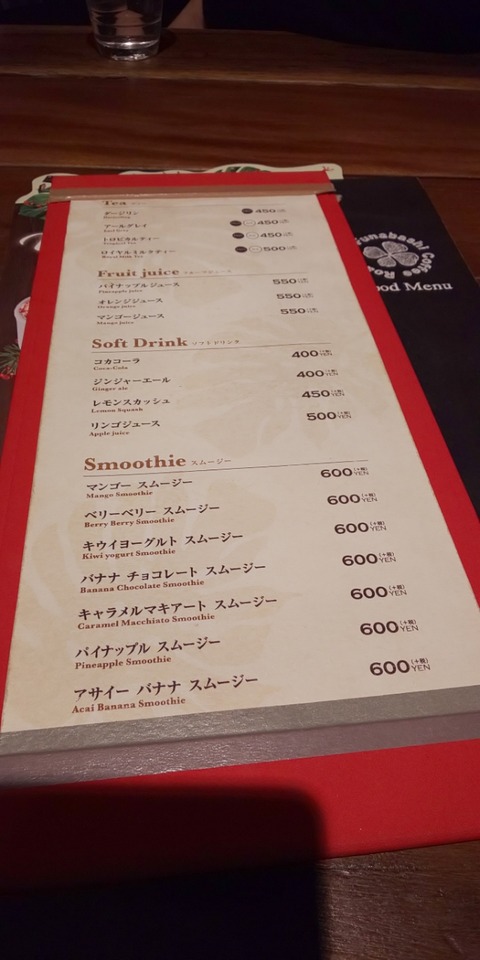 Tea
ダージリン
450
Darjeeling
アールグレイ
450
Earl Grey
トロピカルティー
450
Tropical Tea
ロイヤルミルクティー
500
Royal Milk Tea
Fruit juice フルーツジュース
パイナップルジュース
550
Pineapple juice
オレンジジュース
550
Orange juice
マンゴージュース
550
Mango juice
Soft Drink ソフトドリンク
コカコーラ
400 (+税) YEN
Coca-Cola
ジンジャーエール
400 (+税) YEN
Ginger ale
レモンスカッシュ
450 (+税) YEN
Lemon Squash
リンゴジュース
500 (+税) YEN
Apple juice
Smoothie スムージー
マンゴー スムージー
600 (+税) YEN
Mango Smoothie
ベリーベリー スムージー
600 (+税) YEN
Berry Berry Smoothie
キウイヨーグルト スムージー
600 (+税) YEN
Kiwi yogurt Smoothie
バナナ チョコレート スムージー
600 (+税) YEN
Banana Chocolate Smoothie
キャラメルマキアート スムージー
600 (+税) YEN
Caramel Macchiato Smoothie
パイナップル スムージー
600 (+税) YEN
Pineapple Smoothie
アサイー バナナ スムージー
600 (+税) YEN
Acai Banana Smoothie
unabashi Coffee
ood Menu